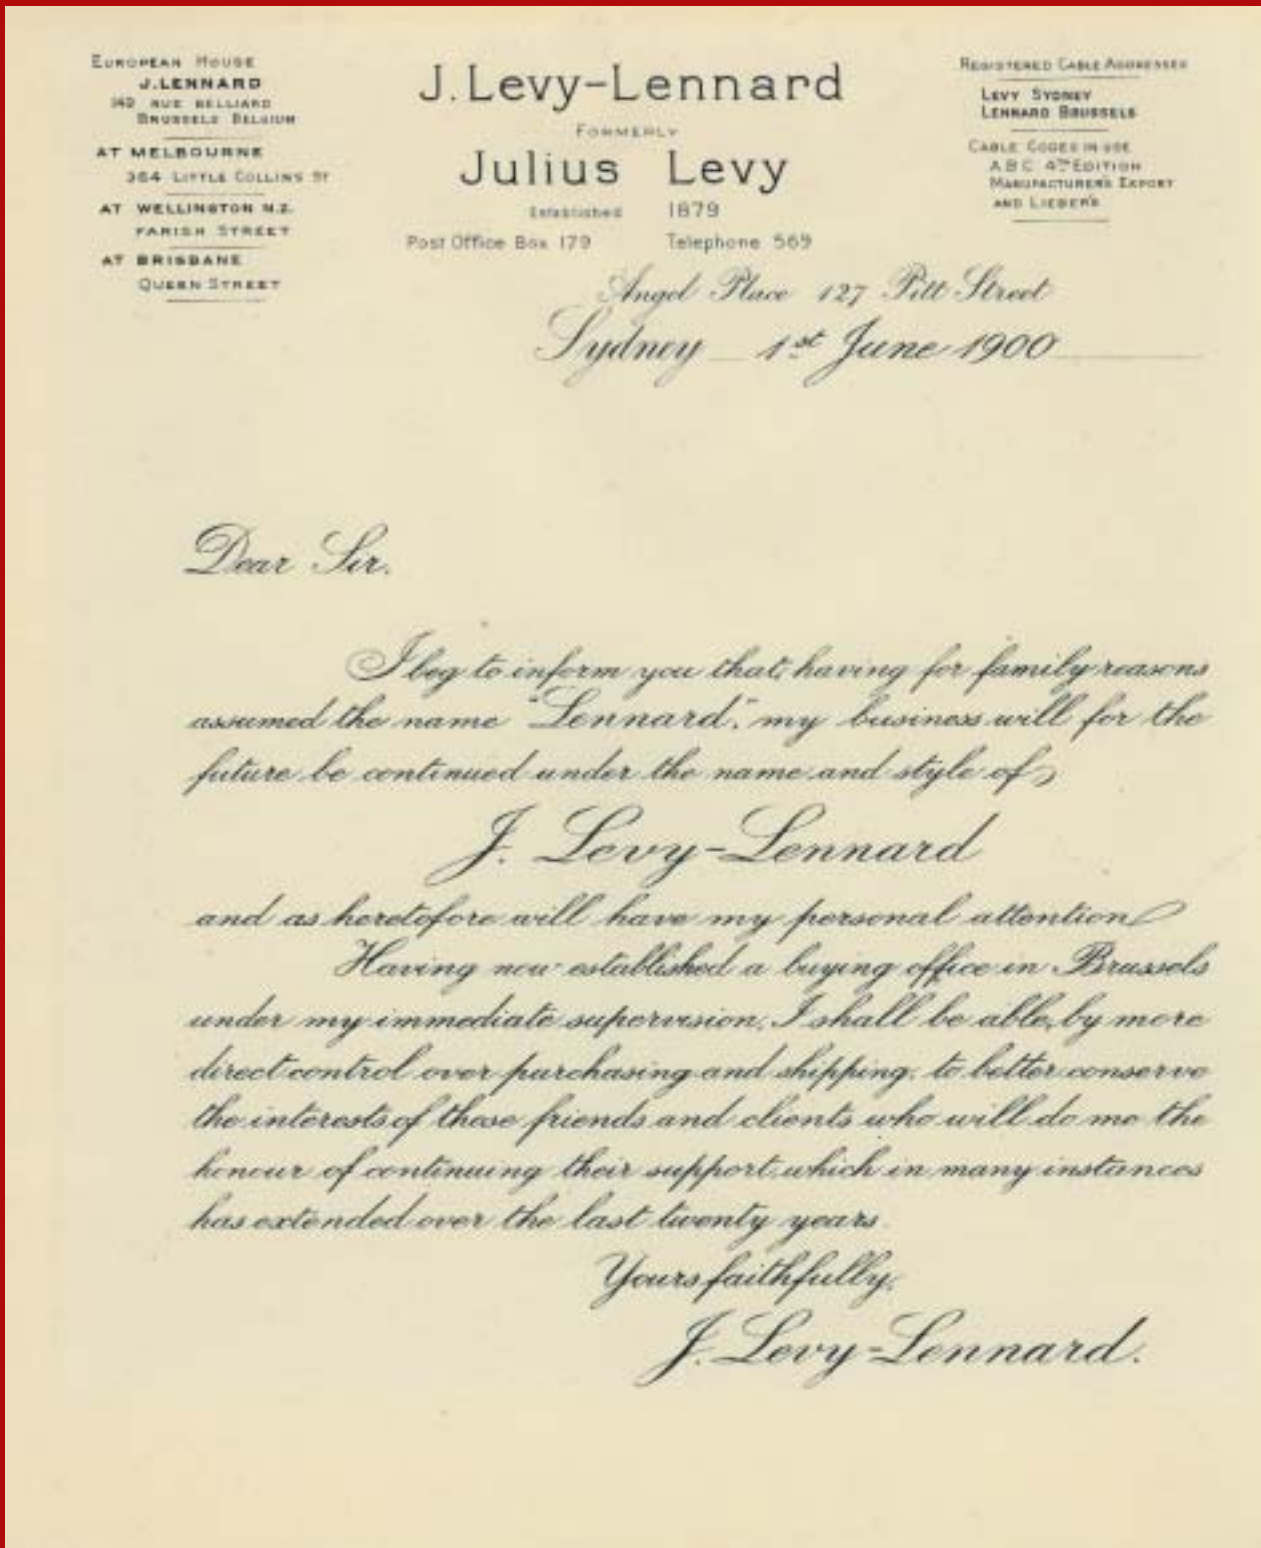 EUROPEAN HOUSE
J. LENNARD
149 RUE BELLIARD
BRUSSELS BELGIUM
AT MELBOURNE
364 LITTLE COLLINS ST
AT WELLINGTON N.Z.
FARISH STREET
AT BRISBANE
QUEEN STREET
J. Levy-Lennard
FORMERLY
Julius Levy
Established 1879
Post Office Box 179 Telephone 569
REGISTERED CABLE ADDRESSES
LEVY SYDNEY
LENNARD BRUSSELS
CABLE CODES IN USE
A B C 4TH EDITION
MANUFACTURER'S EXPORT
AND LIEBER'S
Angel Place 127 Pitt Street
Sydney 1st June 1900
Dear Sir.
I beg to inform you that, having for family reasons
assumed the name "Lennard", my business will for the
future be continued under the name and style of
J. Levy-Lennard
and as heretofore will have my personal attention
Having now established a buying office in Brussels
under my immediate supervision, I shall be able, by more
direct control over purchasing and shipping, to better conserve
the interests of those friends and clients who will do me the
honour of continuing their support, which in many instances
has extended over the last twenty years.
Yours faithfully,
J. Levy-Lennard.